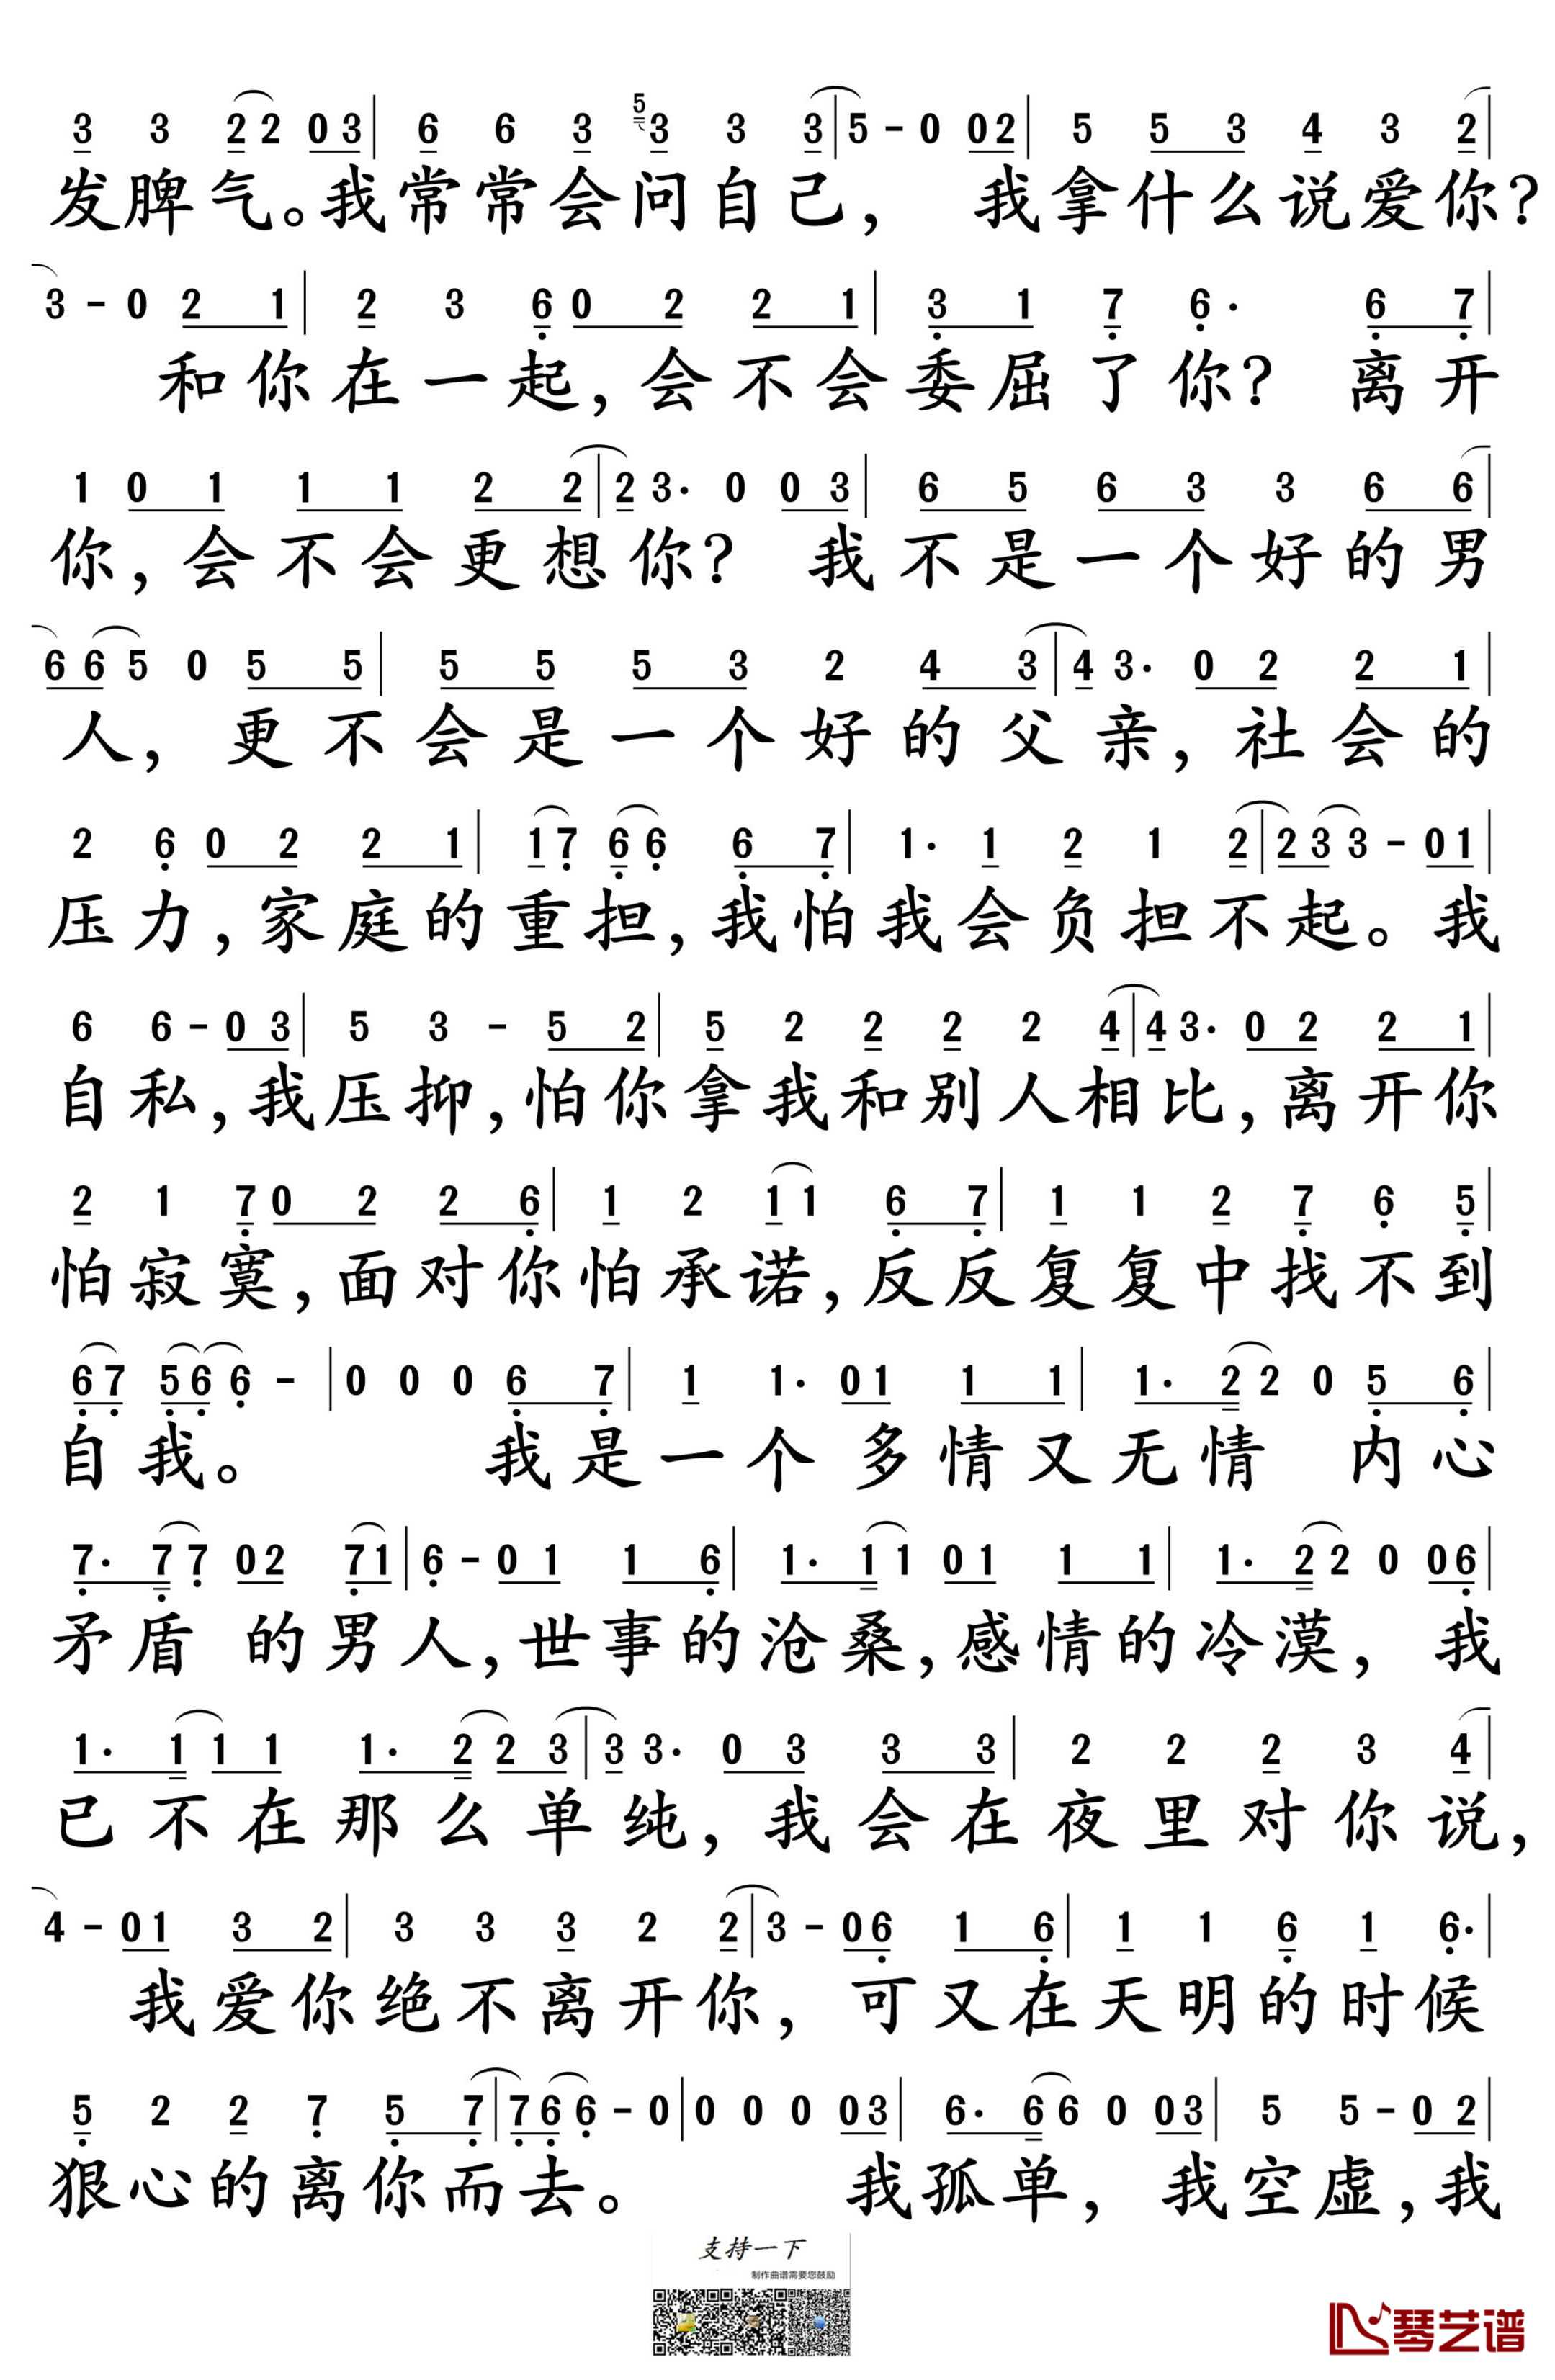 3 3 2 2 0 3 | 6 6 3 5 3 3 3 | 5 - 0 0 2 | 5 5 3 4 3 2 |
发脾气。我常常会问自己， 我拿什么说爱你？
3 - 0 2 1 | 2 3 6 0 2 2 1 | 3 1 7 6 · 6 7 |
和你在一起，会不会委屈了你？ 离开
1 0 1 1 1 2 2 | 2 3 · 0 0 3 | 6 5 6 3 3 6 6 |
你，会不会更想你？ 我不是一个好的男
6 6 5 0 5 5 | 5 5 5 3 2 4 3 | 4 3 · 0 2 2 1 |
人，更不会是一个好的父亲，社会的
2 6 0 2 2 1 | 1 7 6 6 6 7 | 1 · 1 2 1 2 | 2 3 3 - 0 1 |
压力，家庭的重担，我怕我会负担不起。我
6 6 - 0 3 | 5 3 - 5 2 | 5 2 2 2 2 4 | 4 3 · 0 2 2 1 |
自私，我压抑，怕你拿我和别人相比，离开你
2 1 7 0 2 2 6 | 1 2 1 1 6 7 | 1 1 2 7 6 5 |
怕寂寞，面对你怕承诺，反反复复中找不到
6 7 5 6 6 - | 0 0 0 6 7 | 1 1 · 0 1 1 1 | 1 · 2 2 0 5 6 |
自我。 我是一个多情又无情 内心
7 · 7 7 0 2 7 1 | 6 - 0 1 1 6 | 1 · 1 1 0 1 1 1 | 1 · 2 2 0 0 6 |
矛盾 的男人，世事的沧桑，感情的冷漠， 我
1 · 1 1 1 1 · 2 2 3 | 3 3 · 0 3 3 3 | 2 2 2 3 4 |
已不在那么单纯，我会在夜里对你说，
4 - 0 1 3 2 | 3 3 3 2 2 | 3 - 0 6 1 6 | 1 1 6 1 6 · |
我爱你绝不离开你， 可又在天明的时候
5 2 2 7 5 7 | 7 6 6 - 0 | 0 0 0 0 3 | 6 · 6 6 0 0 3 | 5 5 - 0 2 |
狠心的离你而去。 我孤单，我空虚，我
支持一下
制作曲谱需要您鼓励
琴艺谱